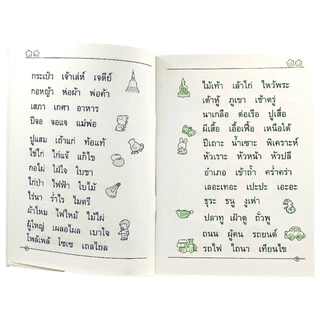 กระเป๋า เจ้าเล่ห์ เจดีย์
กอหญ้า พ่อผ้า พ่อค้า
เสภา เกศา อาหาร
ปีจอ จอแจ แม่พ่อ
ปูแสม เถ้าแก่ ท้อแท้
ไข่ไก่ ไก่แจ้ แก้ไข
กอไผ่ ใฝ่ใจ ใบชา
ไก่ป่า ไฟฟ้า ใบไม้
ไร่นา ร่ำไร ไมตรี
ผ้าไหม ไฟไหม้ ไม้ไผ่
ผู้ใหญ่ เผลอไผล เบาใจ
โพล้เพล้ โซเซ เถลไถล
ไม้เท้า เสาไก่ ไหว้พระ
เต้าหู้ ภูเขา เช้าตรู่
นาเกลือ ต่อเรือ ปูเสื่อ
ผีเสื้อ เอื้อเฟื้อ เหนือใต้
ปีเถาะ น้ำเซาะ พิเคราะห์
หัวเราะ หัวหน้า หัวปลี
อำเภอ เช้าค่ำ คร่ำคร่า
เลอะเทอะ เปะปะ เอะอะ
ธุระ ธนู งูเห่า
ปลาทู เฝ้าดู ถั่วพู
ถนน ผู้คน รถยนต์
รถไฟ ไถนา เทียนไข